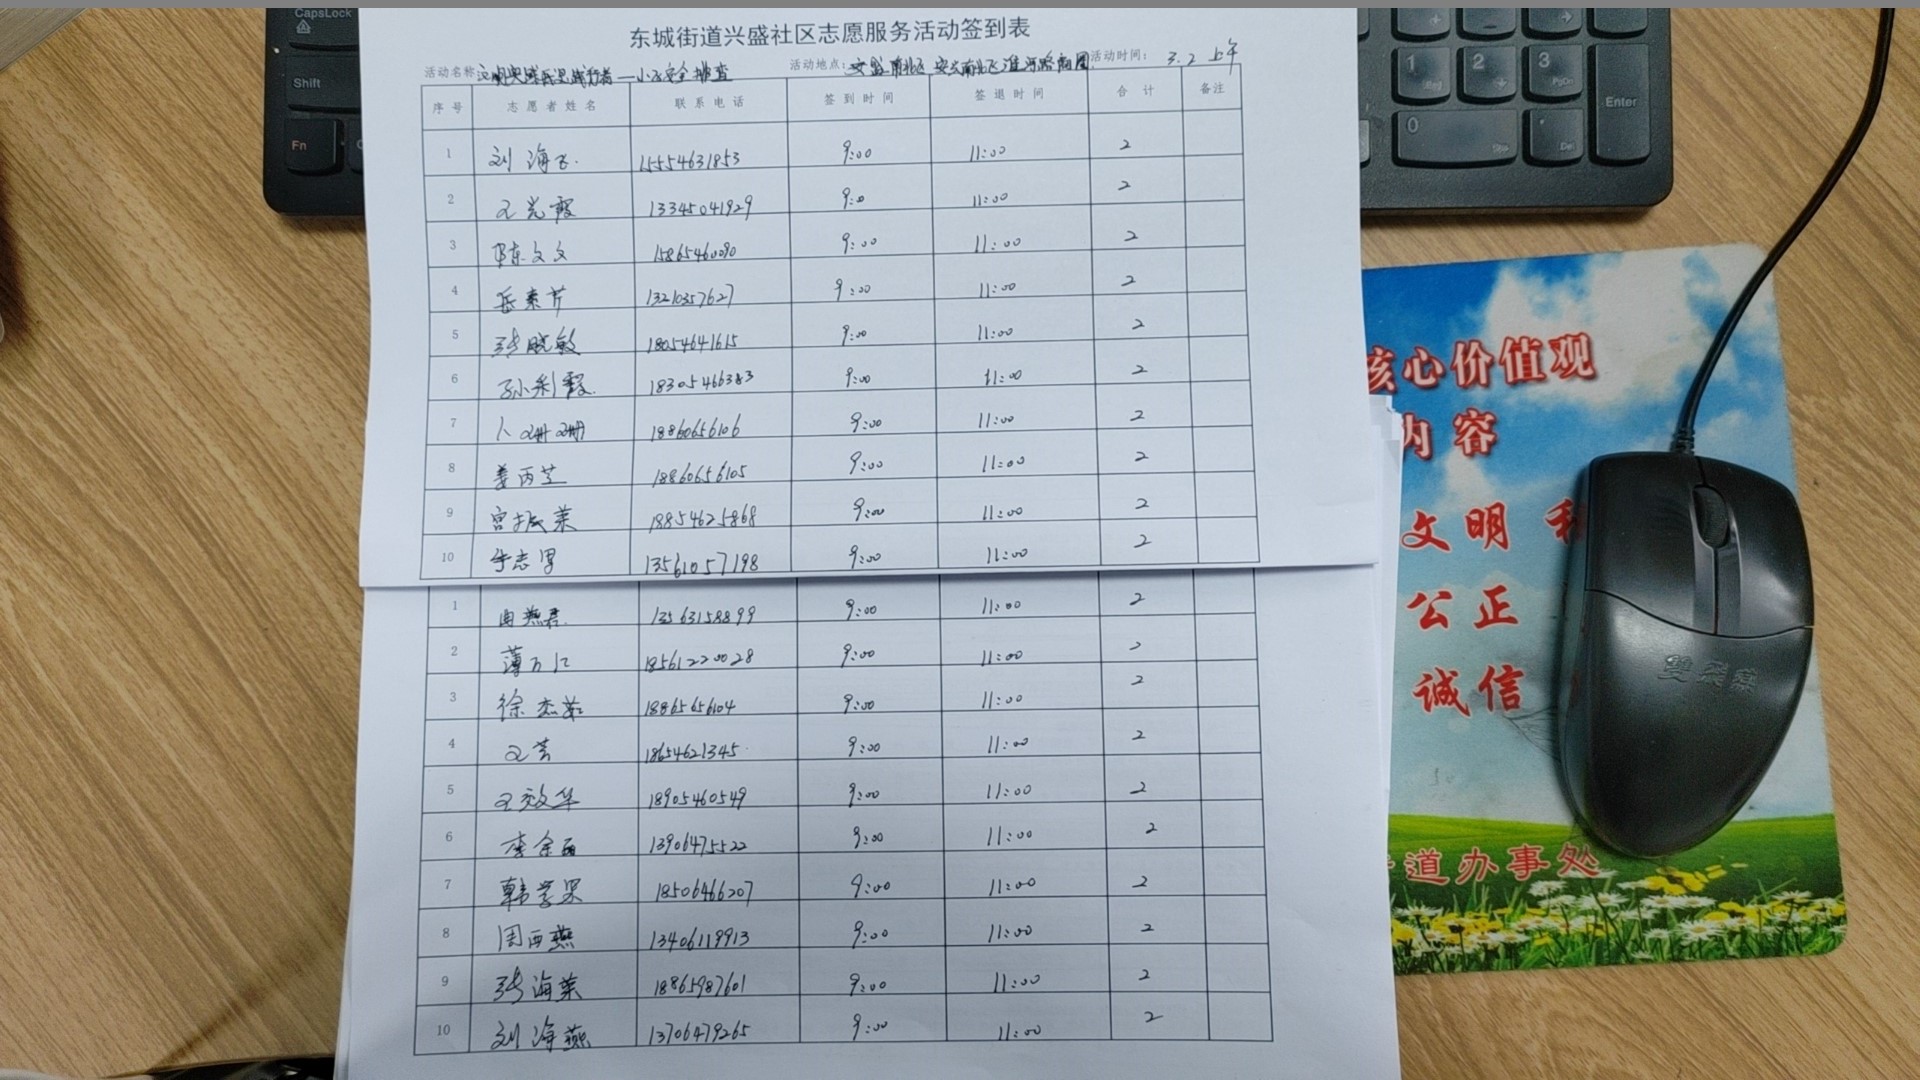 东城街道兴盛社区志愿服务活动签到表
活动名称: 小区安全排查 活动地点: 淮河路商圈 活动时间: 3.2 上午
序号 志愿者姓名 联系电话 签到时间 签退时间 合计 备注
1 刘海飞 15554631853 9:00 11:00 2
2 王光霞 13345041929 9:00 11:00 2
3 陈文文 15865460090 9:00 11:00 2
4 岳素芹 13210357627 9:00 11:00 2
5 张晓敏 18054641615 9:00 11:00 2
6 孙利霞 18305466383 9:00 11:00 2
7 18860656106 9:00 11:00 2
8 姜丙芝 18860656105 9:00 11:00 2
9 宫振英 18854625868 9:00 11:00 2
10 13561057198 9:00 11:00 2
1 13563158899 9:00 11:00 2
2 薄万江 18561220028 9:00 11:00 2
3 徐杰 18865656104 9:00 11:00 2
4 王芳 18654621345 9:00 11:00 2
5 王效华 18905460549 9:00 11:00 2
6 李金 13906475522 9:00 11:00 2
7 韩学 18506466207 9:00 11:00 2
8 周西燕 13406119913 9:00 11:00 2
9 张海英 18865987601 9:00 11:00 2
10 刘海燕 13706479265 9:00 11:00 2
核心价值观
内容
文明 和
公正
诚信
道办事处
雙飛燕
CapsLock
Shift
Fn
1
2
3
Enter
0